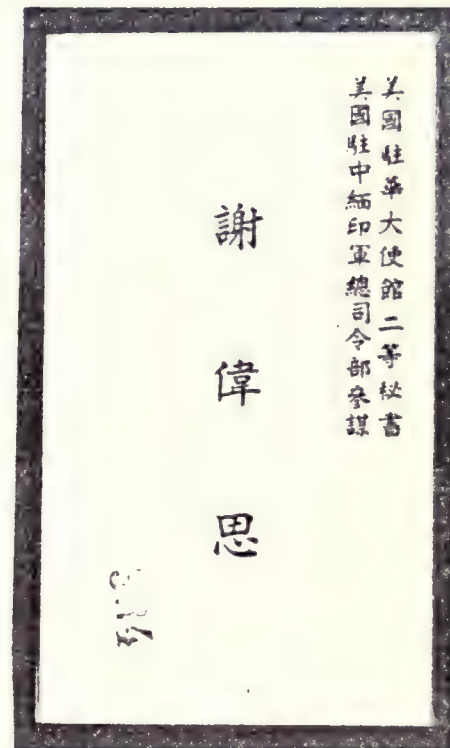 美國駐華大使館二等秘書
美國駐中緬印軍總司令部參謀
謝偉思